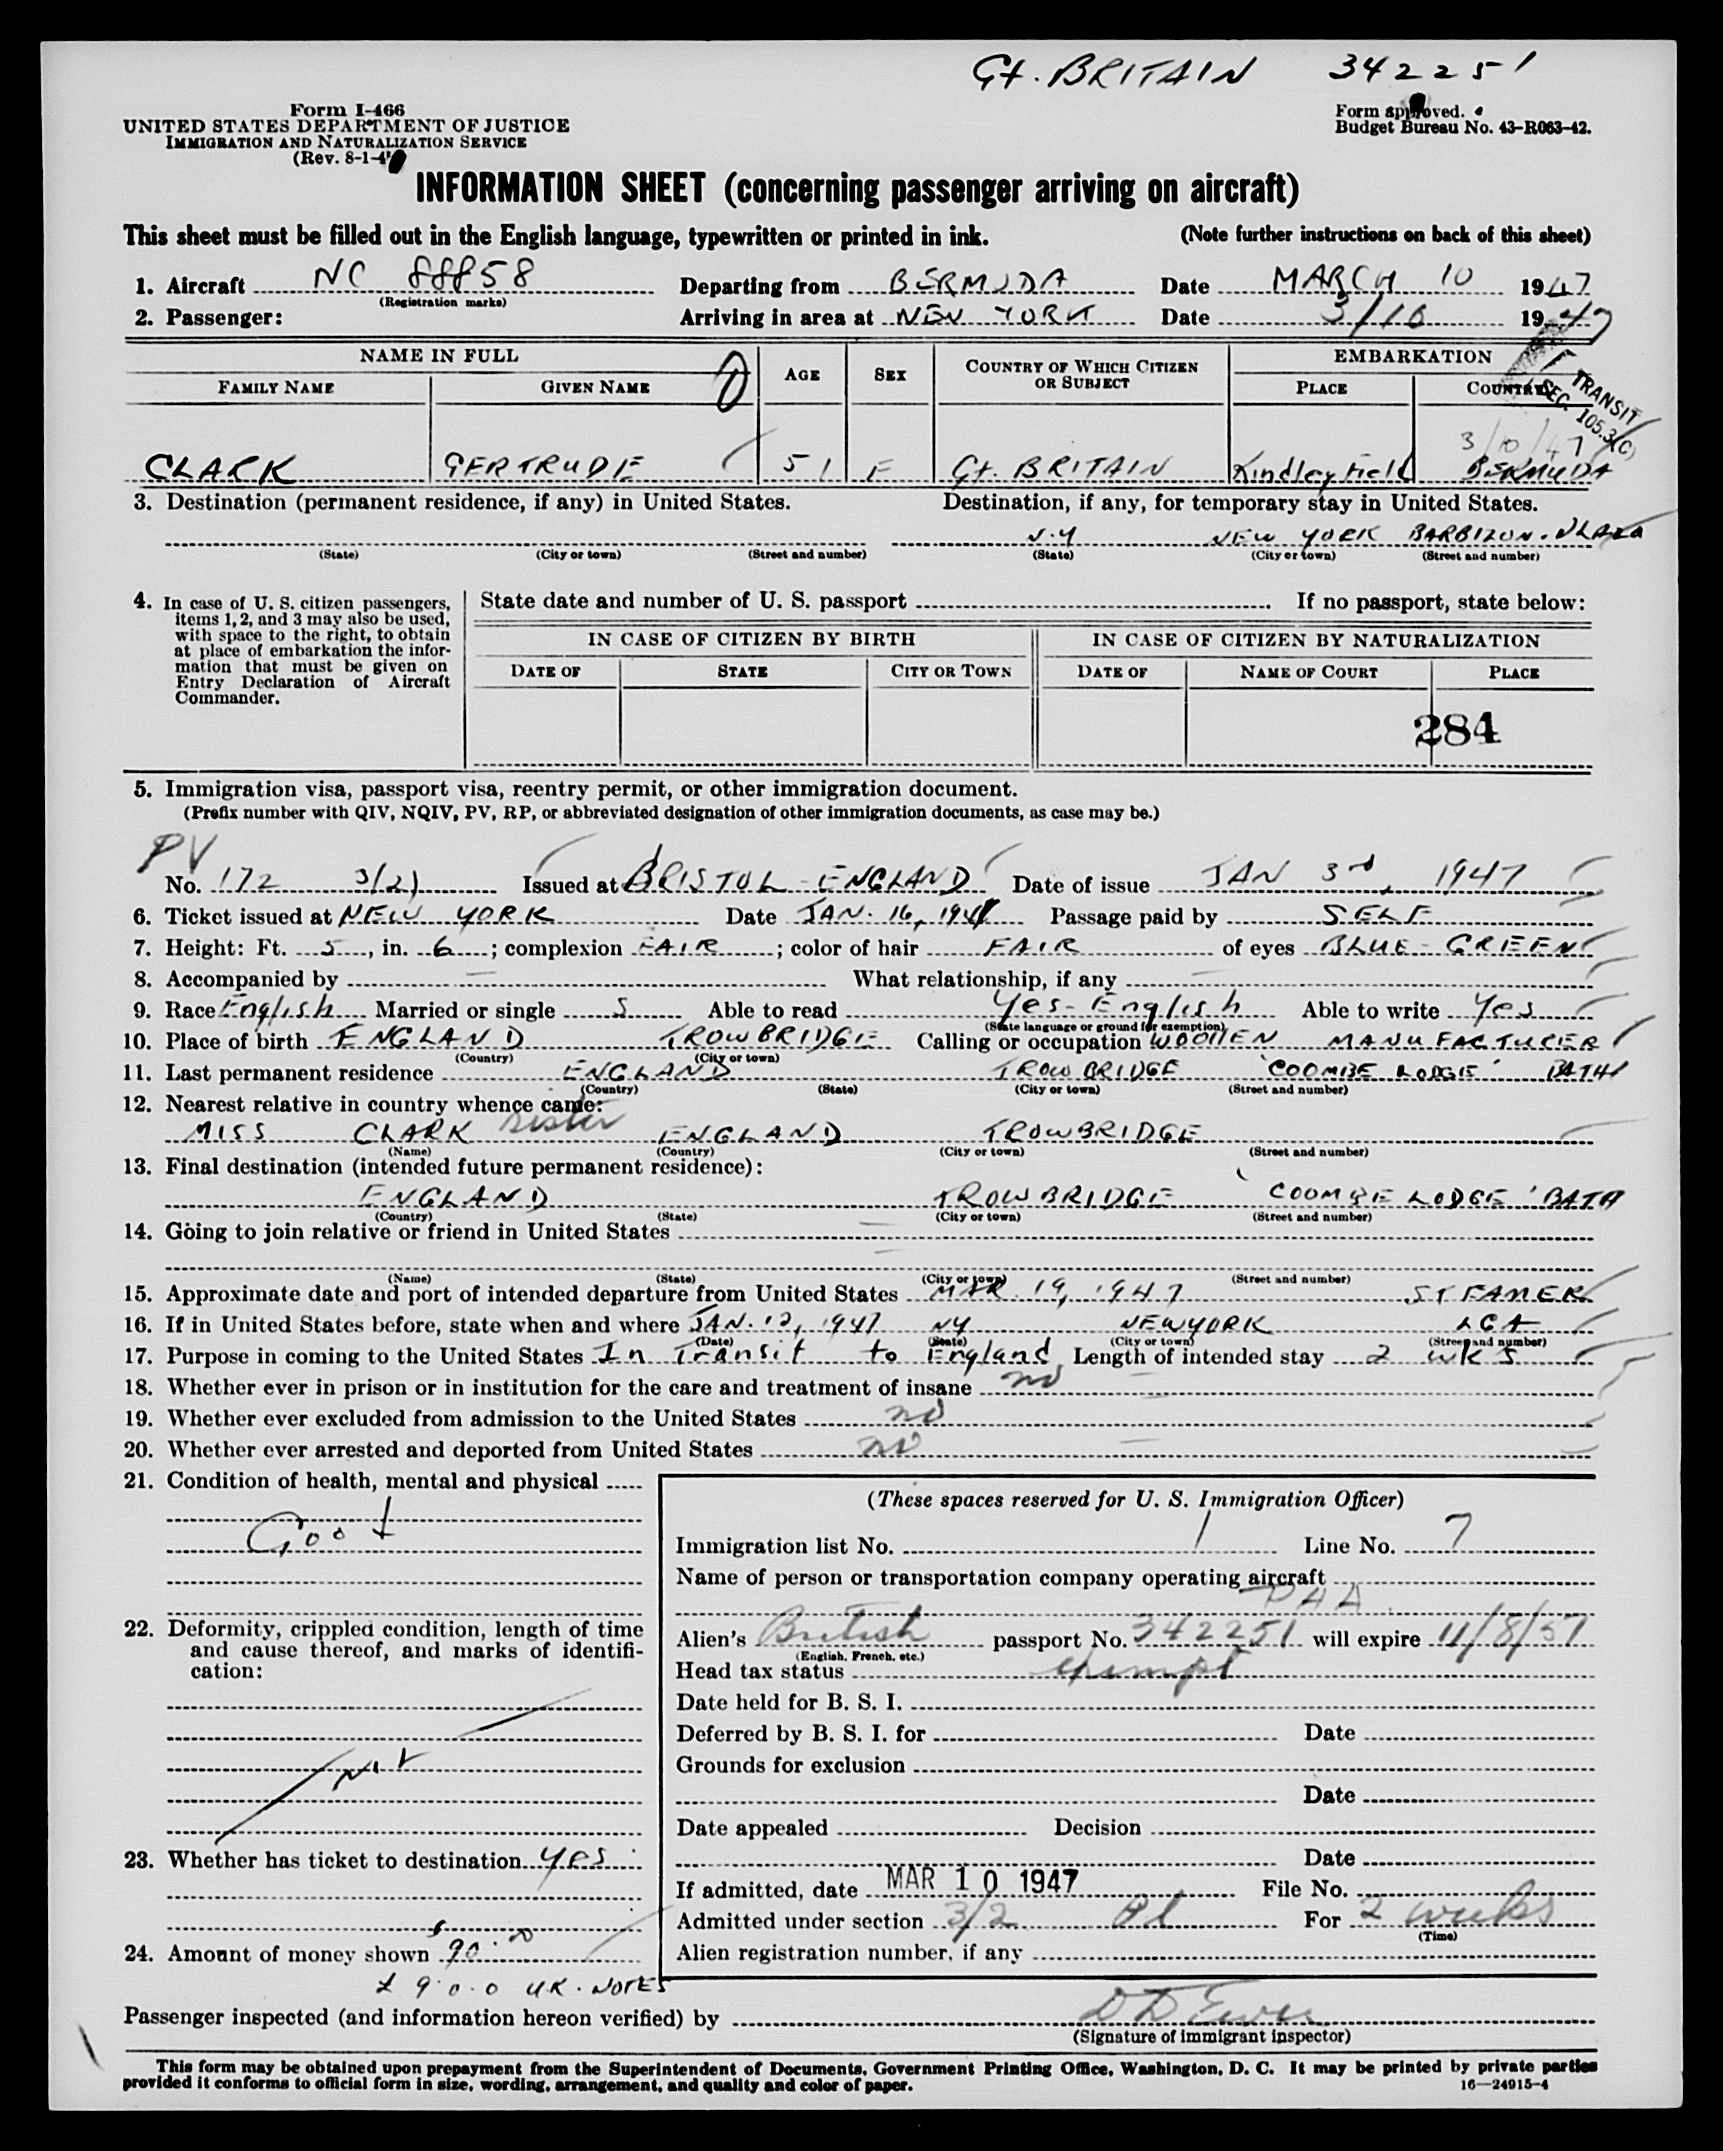 Gt. BRITAIN 342251
Form I-466
UNITED STATES DEPARTMENT OF JUSTICE
IMMIGRATION AND NATURALIZATION SERVICE
(Rev. 8-1-4
Form approved.
Budget Bureau No. 43-R063-42.
INFORMATION SHEET (concerning passenger arriving on aircraft)
This sheet must be filled out in the English language, typewritten or printed in ink. (Note further instructions on back of this sheet)
1. Aircraft NC 88858 Departing from BERMUDA Date MARCH 10 1947
(Registration marks)
2. Passenger: Arriving in area at NEW YORK Date 3/10 1947
NAME IN FULL AGE SEX COUNTRY OF WHICH CITIZEN OR SUBJECT EMBARKATION
FAMILY NAME GIVEN NAME PLACE COUNTRY
TRANSIT
SEC. 105.3(C)
3/10/47
CLARK GERTRUDE 51 F Gt. BRITAIN Kindley Field BERMUDA
3. Destination (permanent residence, if any) in United States. Destination, if any, for temporary stay in United States.
N.Y NEW YORK BARBIZON-PLAZA
(State) (City or town) (Street and number) (State) (City or town) (Street and number)
4. In case of U. S. citizen passengers, items 1, 2, and 3 may also be used, with space to the right, to obtain at place of embarkation the information that must be given on Entry Declaration of Aircraft Commander.
State date and number of U. S. passport If no passport, state below:
IN CASE OF CITIZEN BY BIRTH IN CASE OF CITIZEN BY NATURALIZATION
DATE OF STATE CITY OR TOWN DATE OF NAME OF COURT PLACE
284
5. Immigration visa, passport visa, reentry permit, or other immigration document.
(Prefix number with QIV, NQIV, PV, RP, or abbreviated designation of other immigration documents, as case may be.)
PV
No. 172 3(2) Issued at BRISTOL - ENGLAND Date of issue JAN 3rd, 1947
6. Ticket issued at NEW YORK Date JAN. 16, 1947 Passage paid by SELF
7. Height: Ft. 5, in. 6; complexion FAIR; color of hair FAIR of eyes BLUE-GREEN
8. Accompanied by — What relationship, if any —
9. Race English Married or single S Able to read Yes-English Able to write Yes
(State language or ground for exemption)
10. Place of birth ENGLAND TROWBRIDGE Calling or occupation WOOLLEN MANUFACTURER
(Country) (City or town)
11. Last permanent residence ENGLAND TROWBRIDGE 'COOMBE LODGE' BATH
(Country) (State) (City or town) (Street and number)
12. Nearest relative in country whence came:
MISS CLARK sister ENGLAND TROWBRIDGE
(Name) (Country) (City or town) (Street and number)
13. Final destination (intended future permanent residence):
ENGLAND TROWBRIDGE 'COOMBE LODGE' BATH
(Country) (State) (City or town) (Street and number)
14. Going to join relative or friend in United States —
—
(Name) (State) (City or town) (Street and number)
15. Approximate date and port of intended departure from United States MAR 19, 1947 STEAMER
16. If in United States before, state when and where JAN. 12, 1947 NY NEW YORK LGA
(Date) (State) (City or town) (Street and number)
17. Purpose in coming to the United States In Transit to England Length of intended stay 2 wks
18. Whether ever in prison or in institution for the care and treatment of insane no —
19. Whether ever excluded from admission to the United States no
20. Whether ever arrested and deported from United States no —
21. Condition of health, mental and physical
Good
22. Deformity, crippled condition, length of time and cause thereof, and marks of identification:
Nil
23. Whether has ticket to destination yes
24. Amount of money shown $90.00
£9.0.0 UK. NOTES
(These spaces reserved for U. S. Immigration Officer)
Immigration list No. 1 Line No. 7
Name of person or transportation company operating aircraft
PAA
Alien's British passport No. 342251 will expire 11/8/51
(English, French, etc.)
Head tax status exempt
Date held for B. S. I.
Deferred by B. S. I. for Date
Grounds for exclusion
Date
Date appealed Decision
Date
If admitted, date MAR 10 1947 File No.
Admitted under section 3/2 For 2 weeks
(Time)
Alien registration number, if any
Passenger inspected (and information hereon verified) by
(Signature of immigrant inspector)
This form may be obtained upon prepayment from the Superintendent of Documents, Government Printing Office, Washington, D. C. It may be printed by private parties
provided it conforms to official form in size, wording, arrangement, and quality and color of paper. 16—24915-4